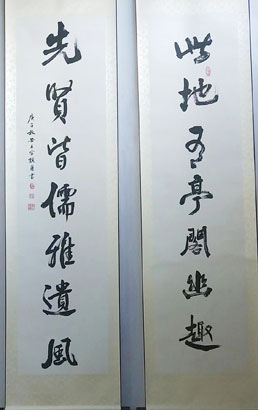 此地有亭閣幽趣
先賢皆儒雅遺風